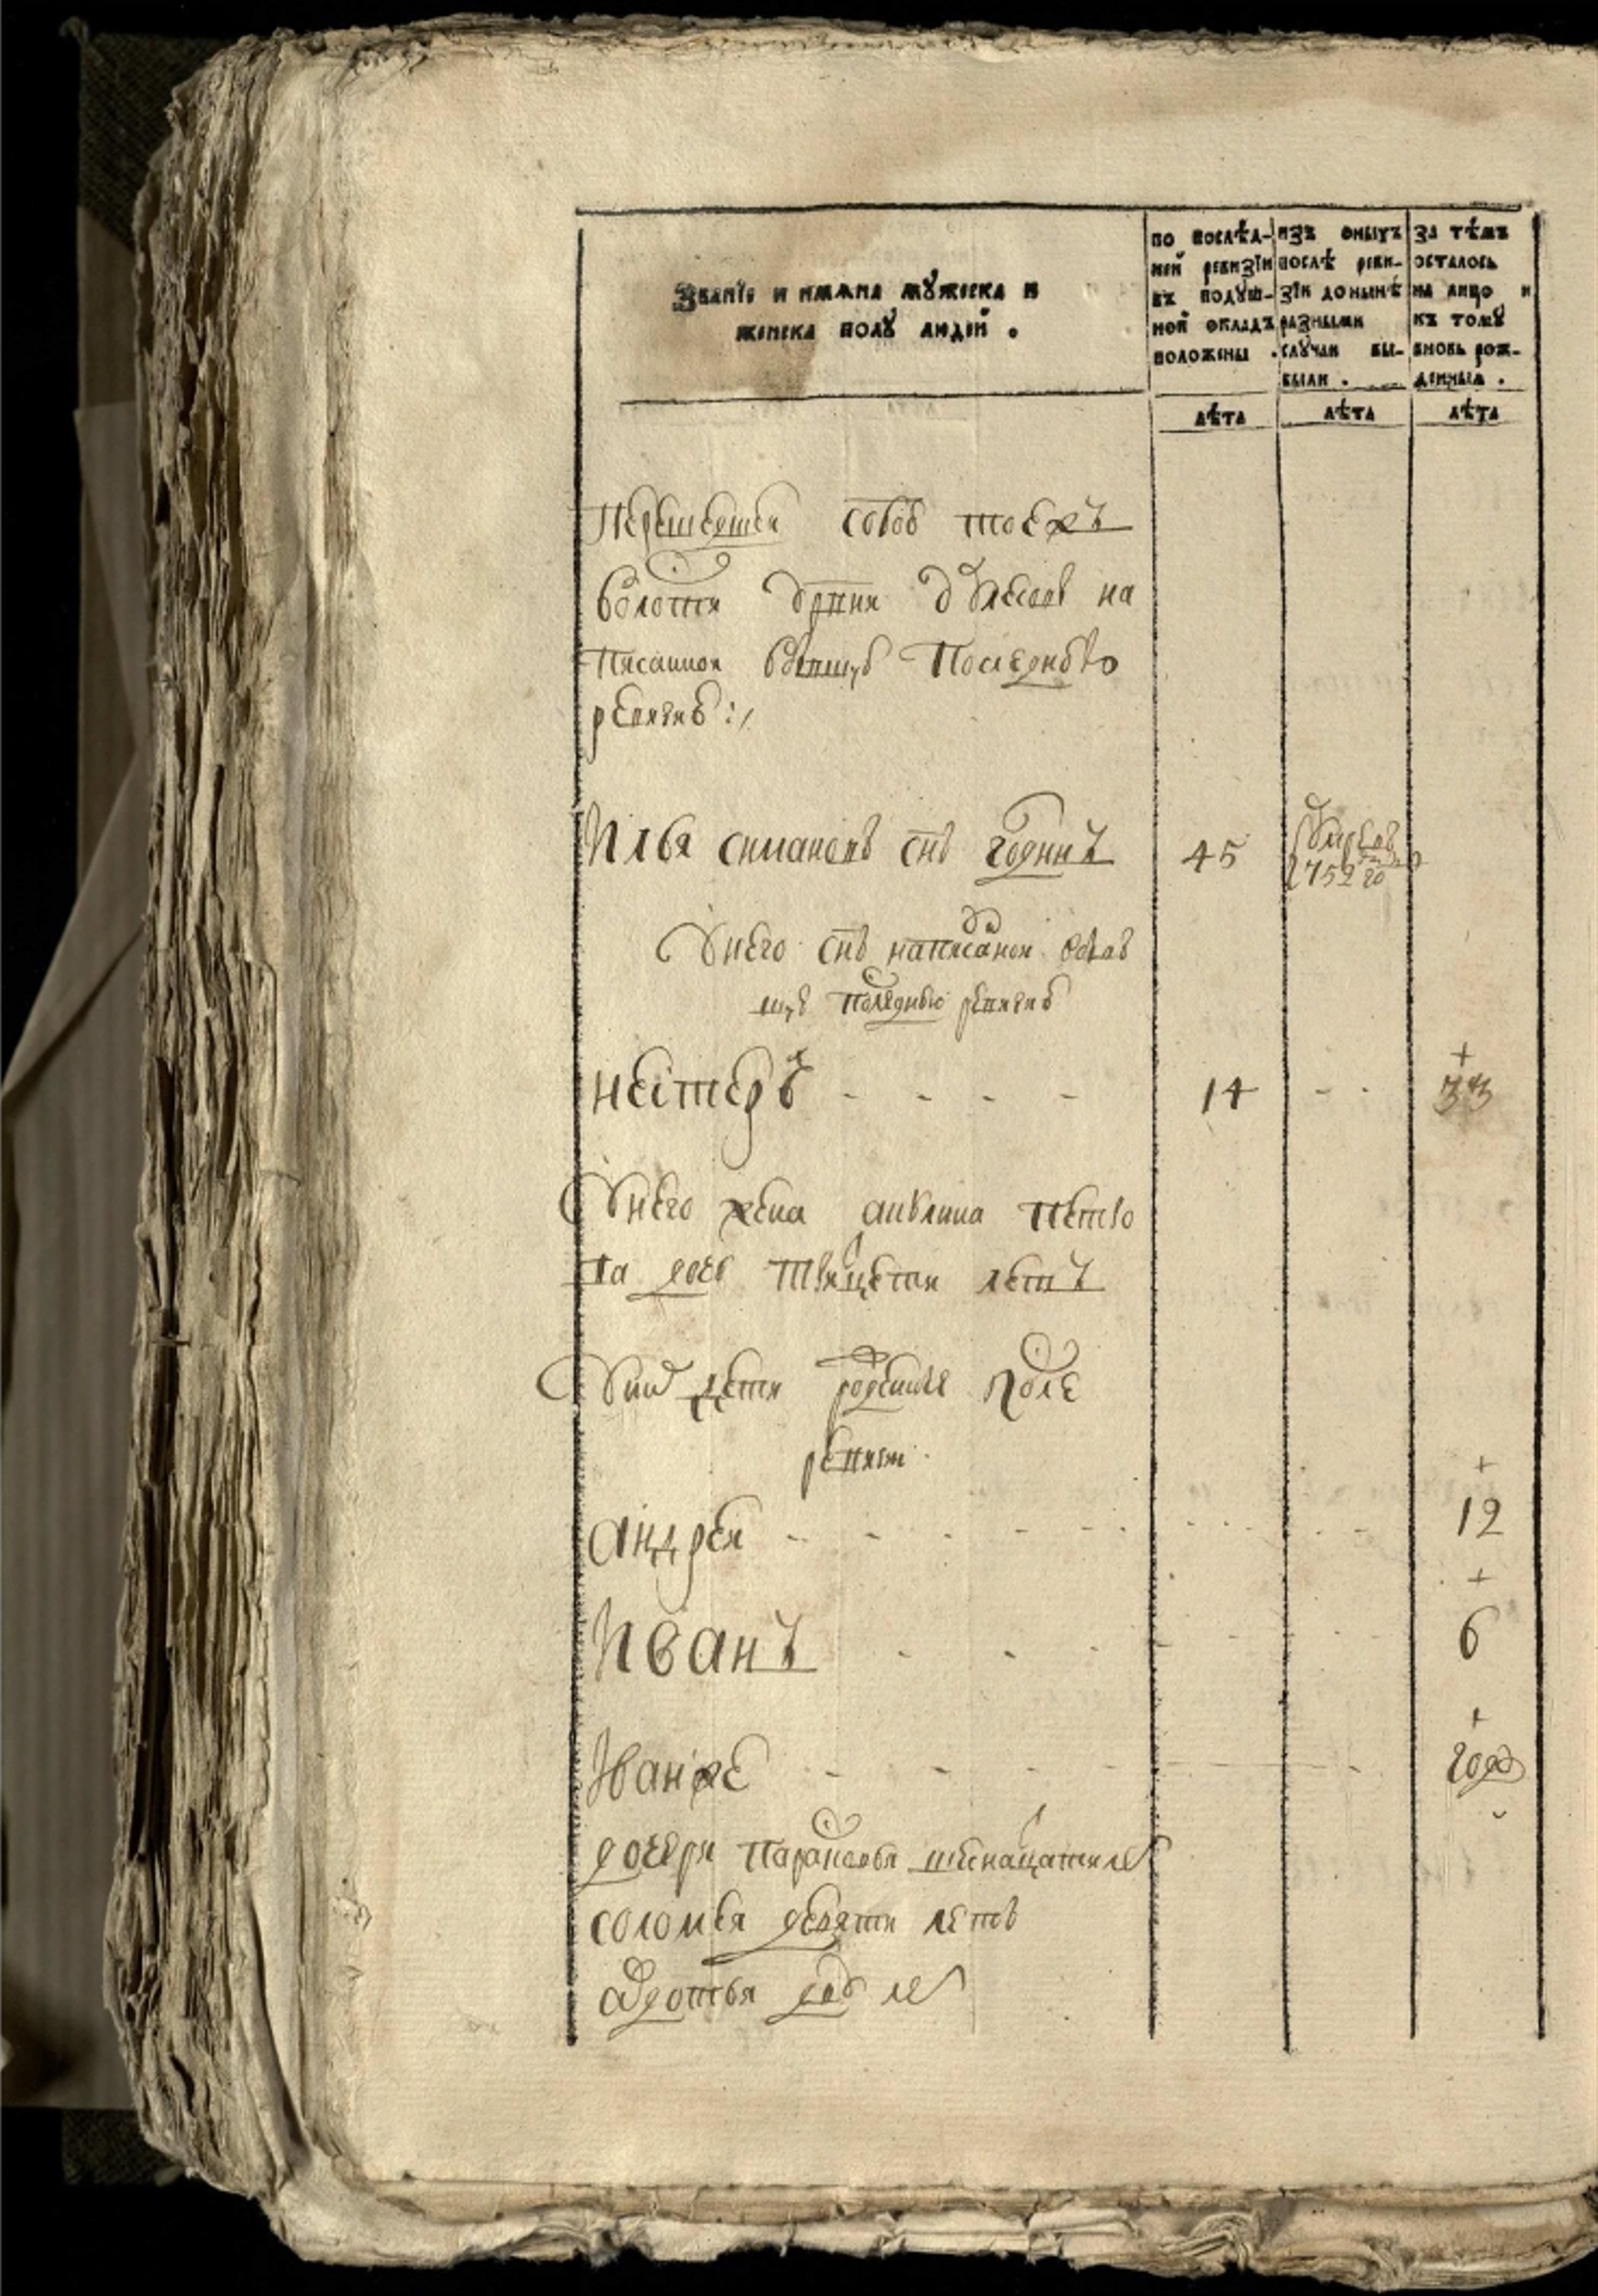 Званїе и имѧна мꙋжеска и
женска полꙋ людей .
по послѣд-
ней ревизїи
въ подꙋш-
ной окладъ
положены .
изъ оныхъ
послѣ реви-
зїи до нынѣ
разными
слꙋчаи вы-
были .
за тѣмъ
осталось
на лицо и
къ томꙋ
вновь рож-
денныѧ .
лѣта
лѣта
лѣта
Перешедшеи собою тоежъ
волости деревни на
писанной въ бывшую последнюю
ревизию :/
Илья симановъ снъ годинъ 45 умре въ 1752 го
У него снъ написаной в быв
шую последнюю ревизию
нестеръ - - - - 14 - - 33
У него жена анълина петро
ва дочь тритцети летъ
У них дети рожденые после
ревизи
андреи - - - - - 12
Иванъ - - - 6
Иванже - - - - год
дочери парасковья шеснацати ле
соломея девяти летъ
авдотья дву ле